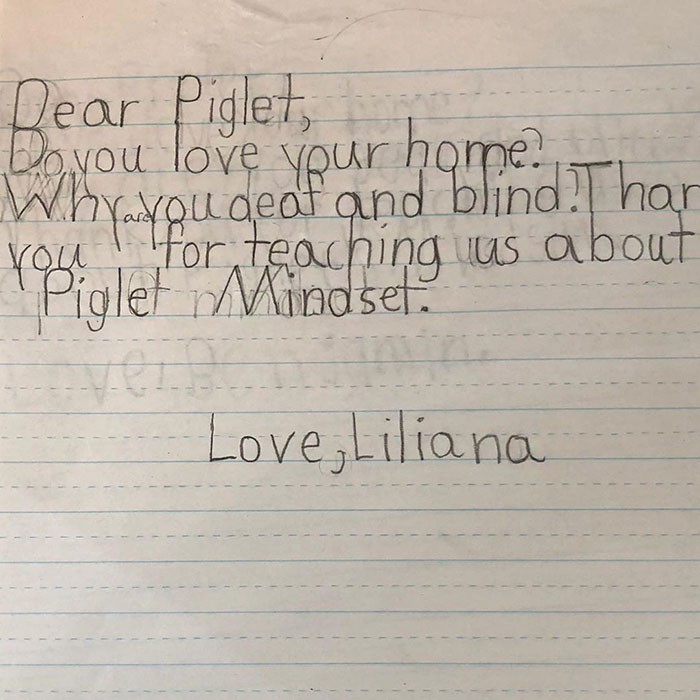 Dear Piglet,
Do you love your home?
Why are you deaf and blind? Than
you for teaching us about
Piglet Mindset.
Love, Liliana